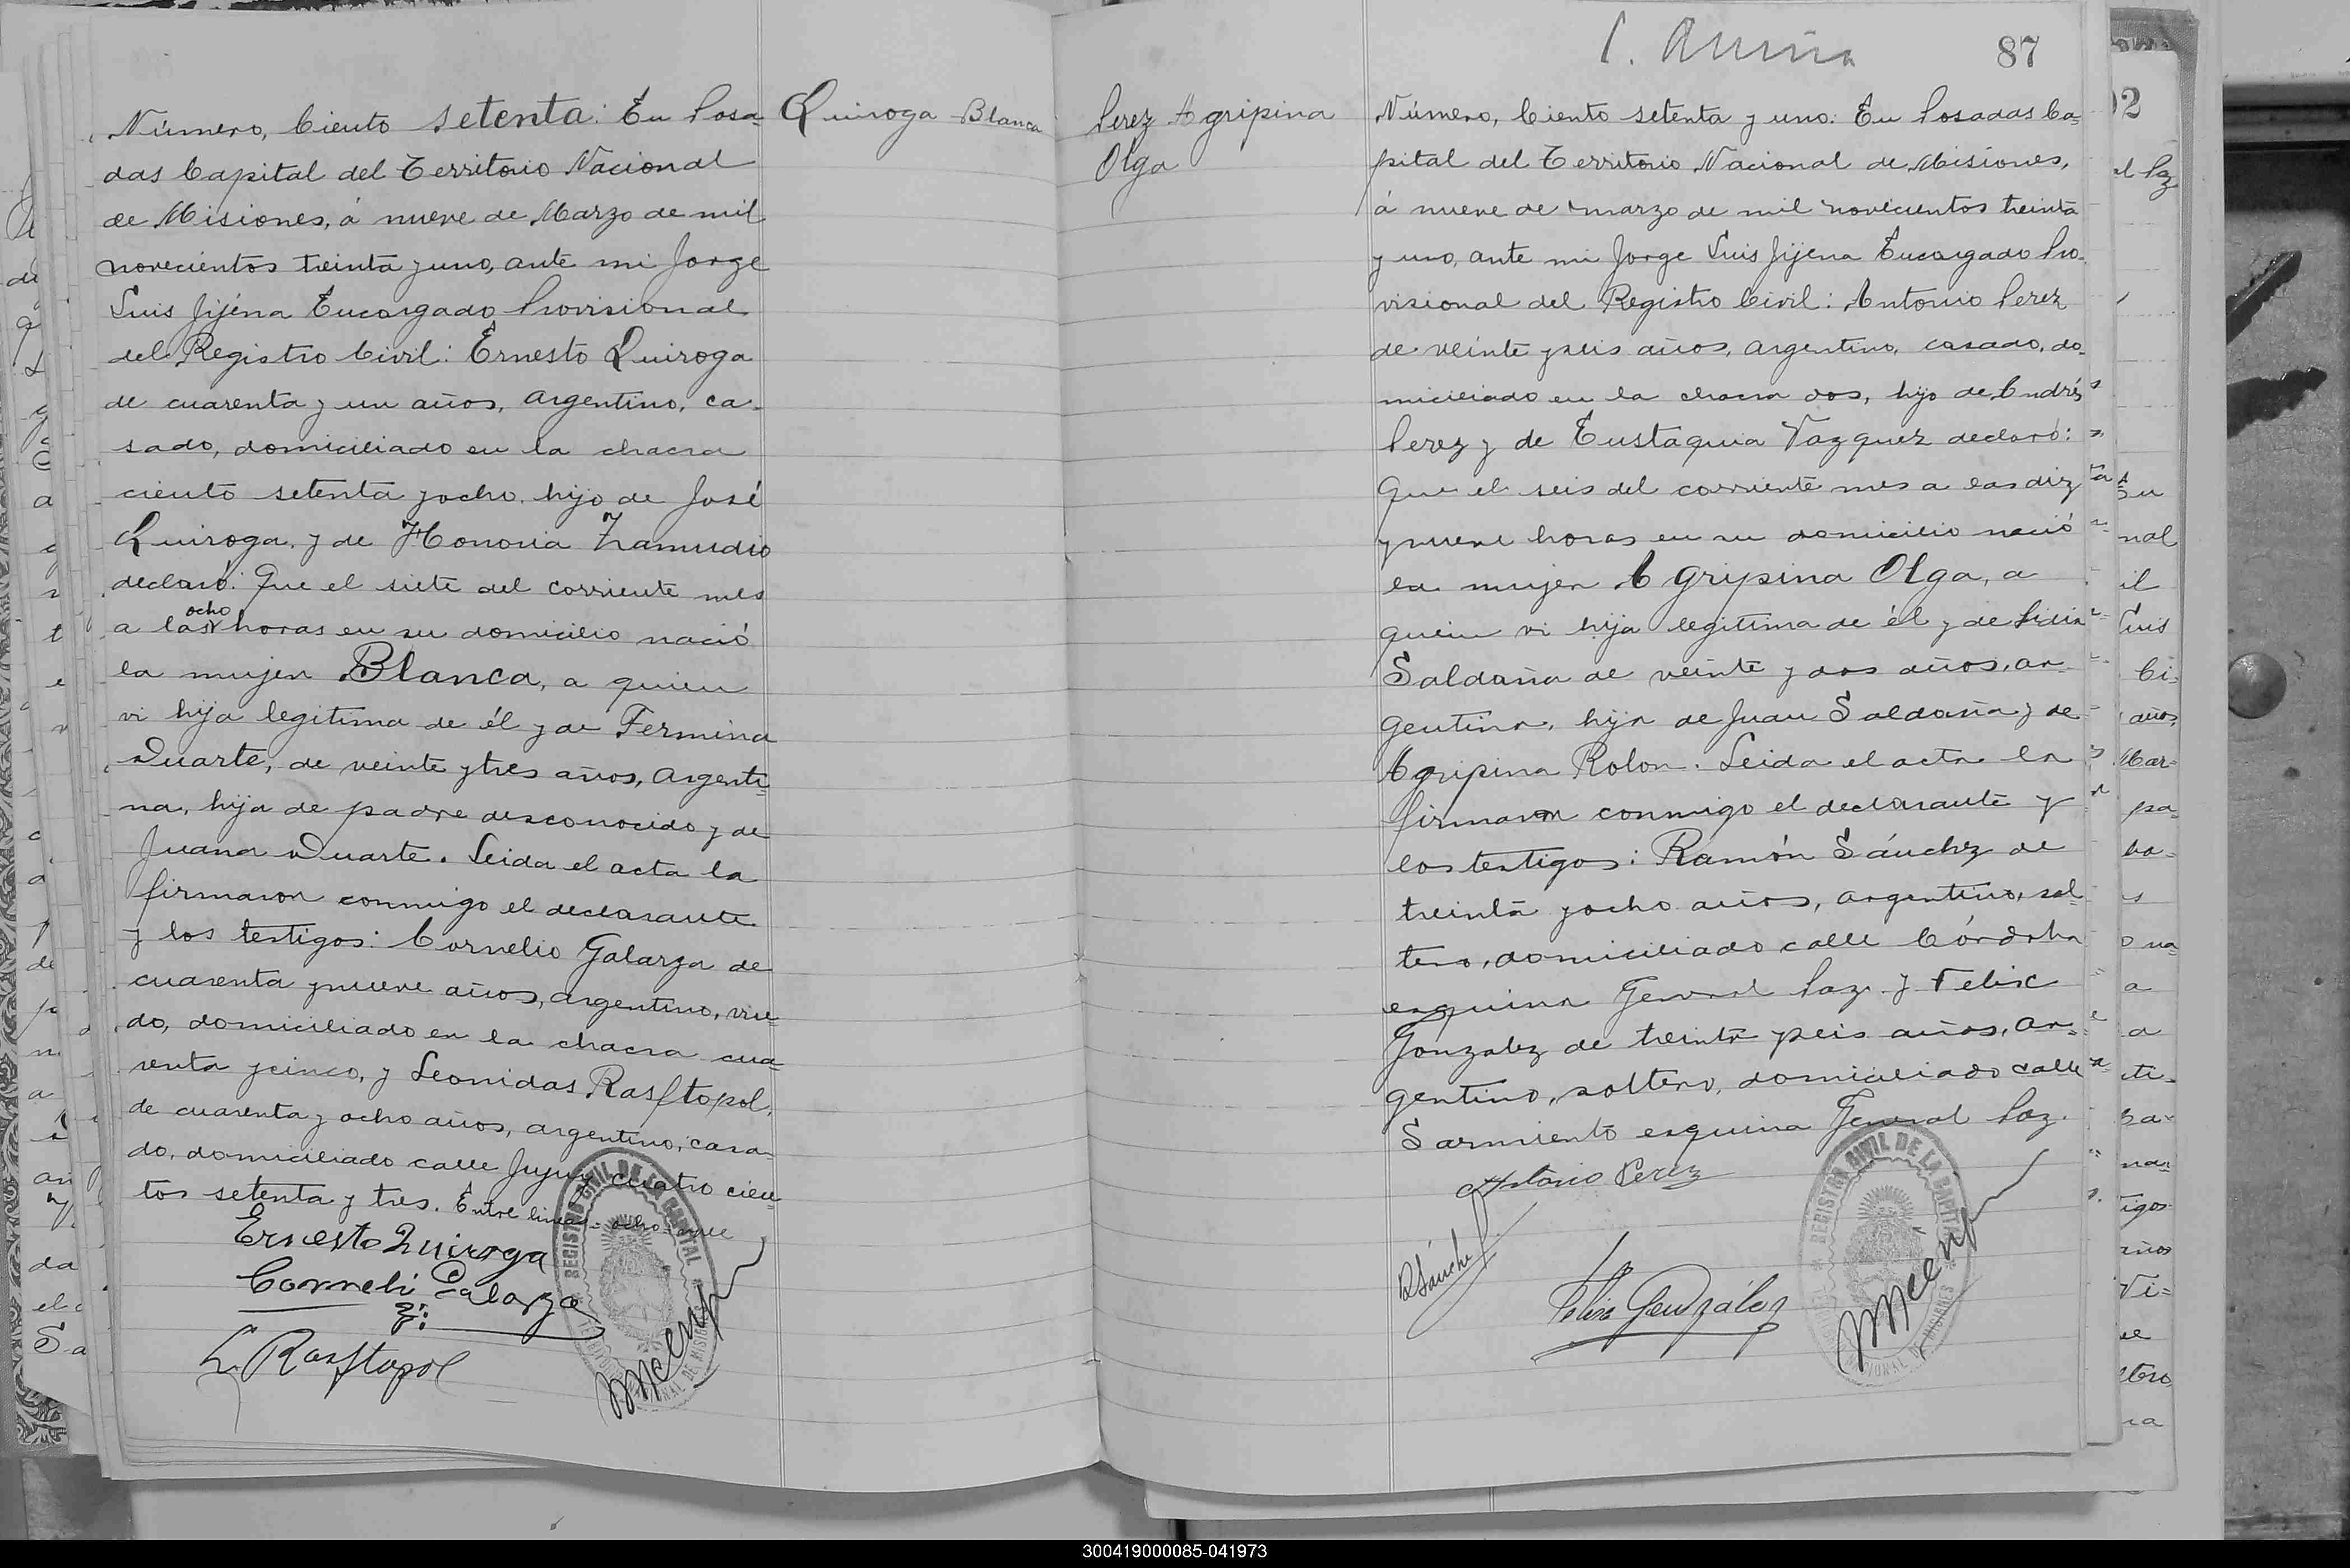 Número, Ciento setenta: En Posa-
das Capital del Territorio Nacional
de Misiones, á nueve de Marzo de mil
novecientos treinta y uno, ante mi Jorge
Luis Jijéna Encargado Provisional
del Registro Civil: Ernesto Quiroga
de cuarenta y un años, argentino, ca-
sado, domiciliado en la chacra
ciento setenta y ocho, hijo de José
Quiroga, y de Honoria Zamudio
declaró: Que el siete del corriente mes
ocho
a las horas en su domicilio nació
la mujer Blanca, a quien
vi hija legitima de él y de Fermina
Duarte, de veinte y tres años, argenti-
na, hija de padre desconocido y de
Juana Duarte. Leida el acta la
firmaron conmigo el declarante
y los testigos: Cornelio Galarza de
cuarenta y nueve años, argentino, viu-
do, domiciliado en la chacra cua-
renta y cinco, y Leonidas Rasftopol,
de cuarenta y ocho años, argentino, casa-
do, domiciliado calle Jujuy cuatro cien-
tos setenta y tres. Entre lineas - ocho - vale
Ernesto Quiroga
Corneli Galarza
L. Rasftopol
REGISTRO CIVIL DE LA CAPITAL
Quiroga Blanca
Perez Agripina
Olga
87
Número, Ciento setenta y uno: En Posadas Ca-
pital del Territorio Nacional de Misiones,
á nueve de marzo de mil novecientos treinta
y uno, ante mi Jorge Luis Jijena Encargado Pro-
visional del Registro Civil: Antonio Perez
de veinte y seis años, argentino, casado, do-
miciliado en la chacra dos, hijo de Andrés
Perez y de Eustaquia Vazquez declaró:
Que el seis del corriente mes a las diez
y nueve horas en su domicilio nació
la mujer Agripina Olga, a
quien vi hija legitima de él y de
Saldaña de veinte y dos años, ar-
gentina, hija de Juan Saldaña y de
Agripina Rolon. Leida el acta la
firmaron conmigo el declarante y
los testigos: Ramón Sánchez de
treinta y ocho años, argentino, sol-
tero, domiciliado calle Córdoba
esquina General Paz y Felix
Gonzalez de treinta y seis años, ar-
gentino, soltero, domiciliado calle
Sarmiento esquina General Paz.
Antonio Perez
R Sánchez
Felix González
REGISTRO CIVIL DE LA CAPITAL
300419000085-041973